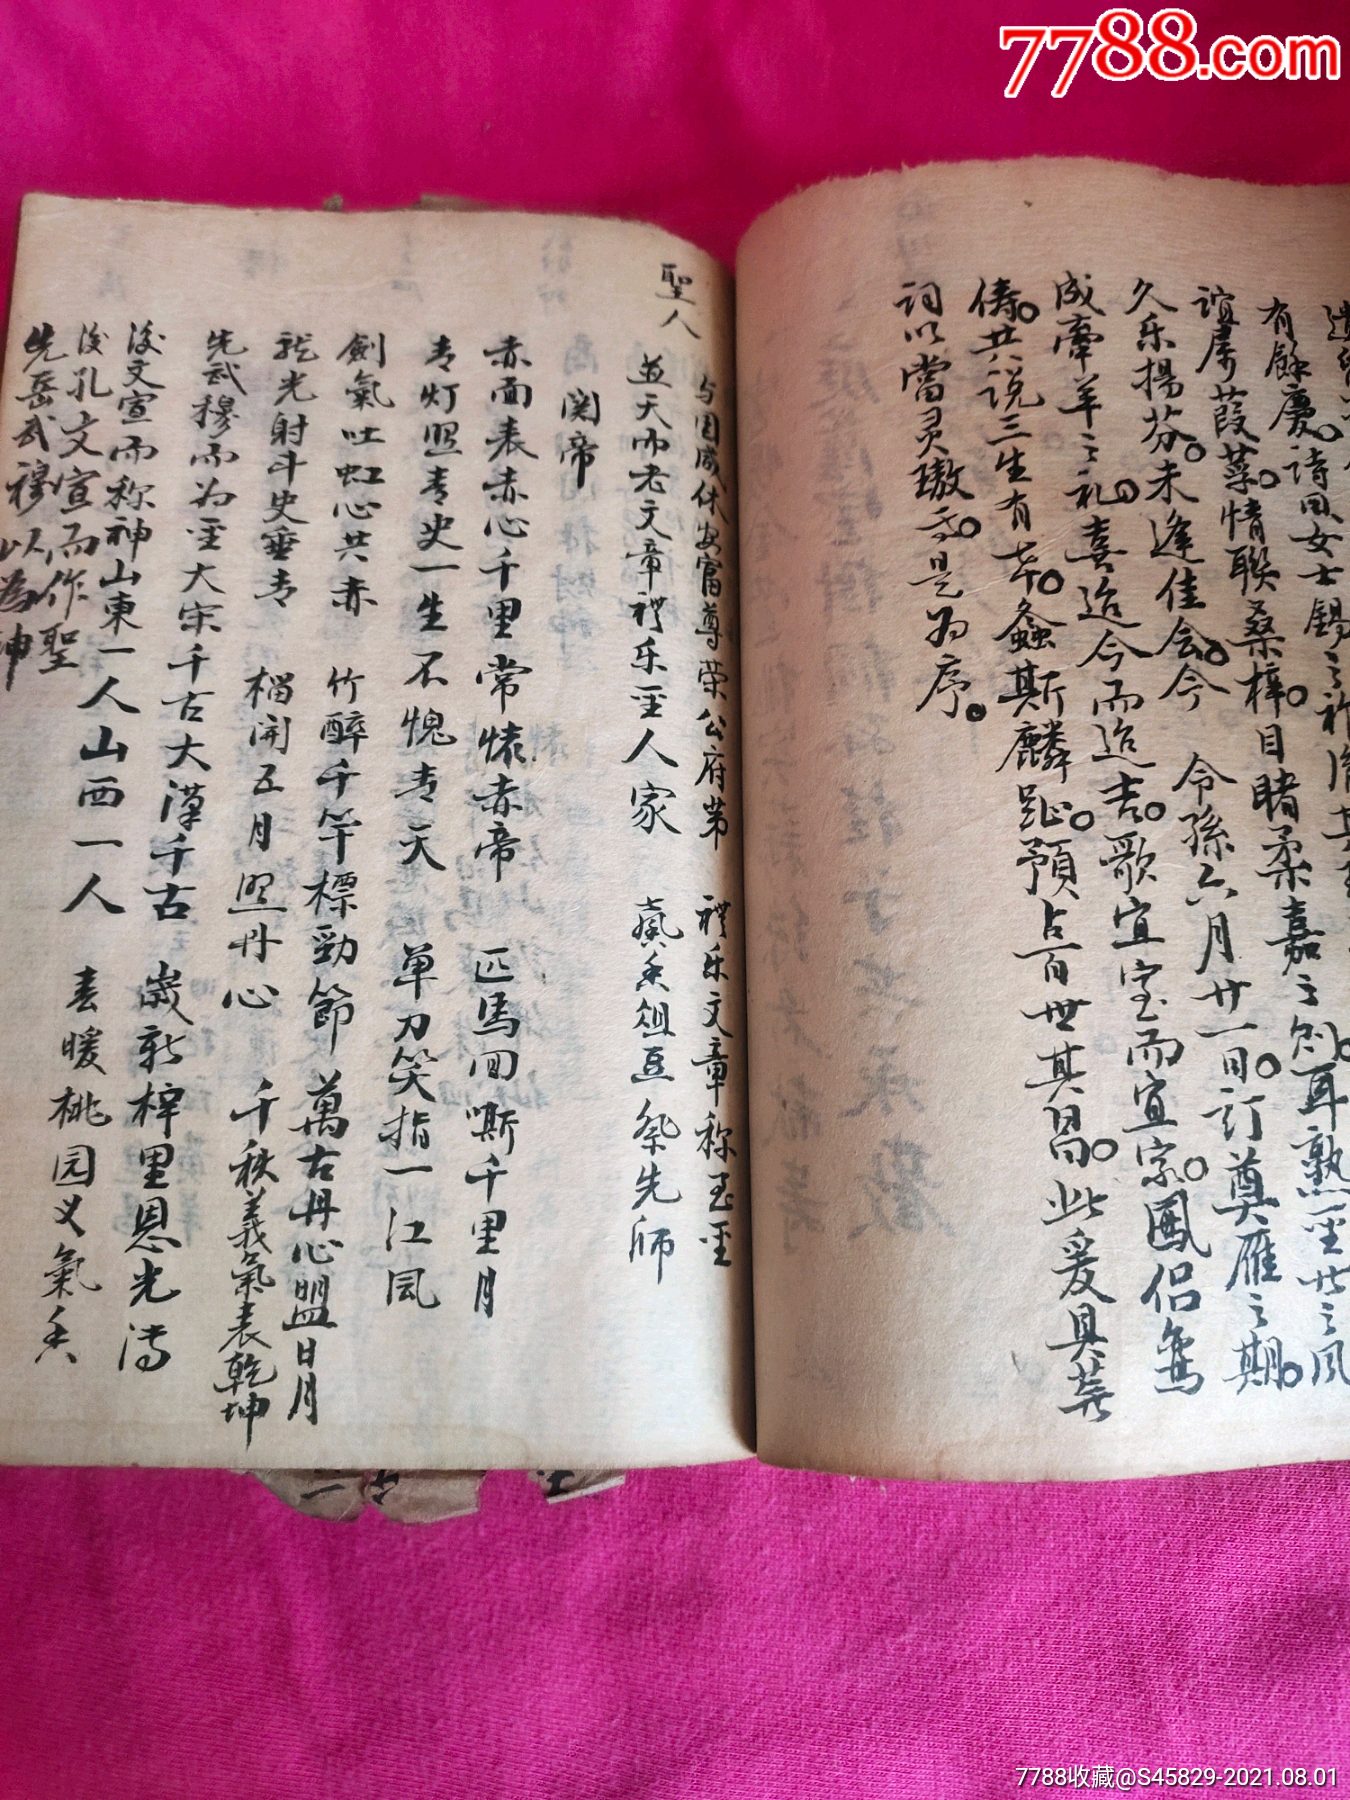 7788.com
有餘慶。詩思女士錫之祚胤
誼屬葭莩。情聯桑梓。目睹柔嘉之則。耳熟
久乐揚芬。未逢佳会。今 令孫六月廿一日。訂奠雁之期。
成牽羊之礼。喜迨今而迨吉。歌宜室而宜家。鳳侣鸞
儔。共说三生有幸。螽斯麟趾。預占百世其昌。此爰具芜
词以當灵璈 是为序。
聖人
与国咸休安富尊荣公府第 禮乐文章称至圣
並天而老文章禮乐圣人家 蘋香俎豆祭先師
関帝
赤面表赤心千里常懐赤帝 匹馬回嘶千里月
青灯照青史一生不愧青天 单刀笑指一江风
劍氣吐虹心共赤 竹醉千竿標勁節 萬古丹心盟日月
龍光射斗史垂青 榴開五月照丹心 千秋義氣表乾坤
先武穆而为圣大宋千古大漢千古 歲新梓里恩光溥
後文宣而称神山東一人山西一人 春暖桃园义氣香
後孔文宣而作聖
先岳武穆以為神
7788收藏@S45829-2021.08.01